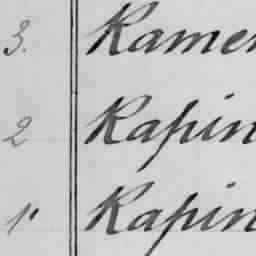 3. Kamen
2 Kapin
1" Kapin